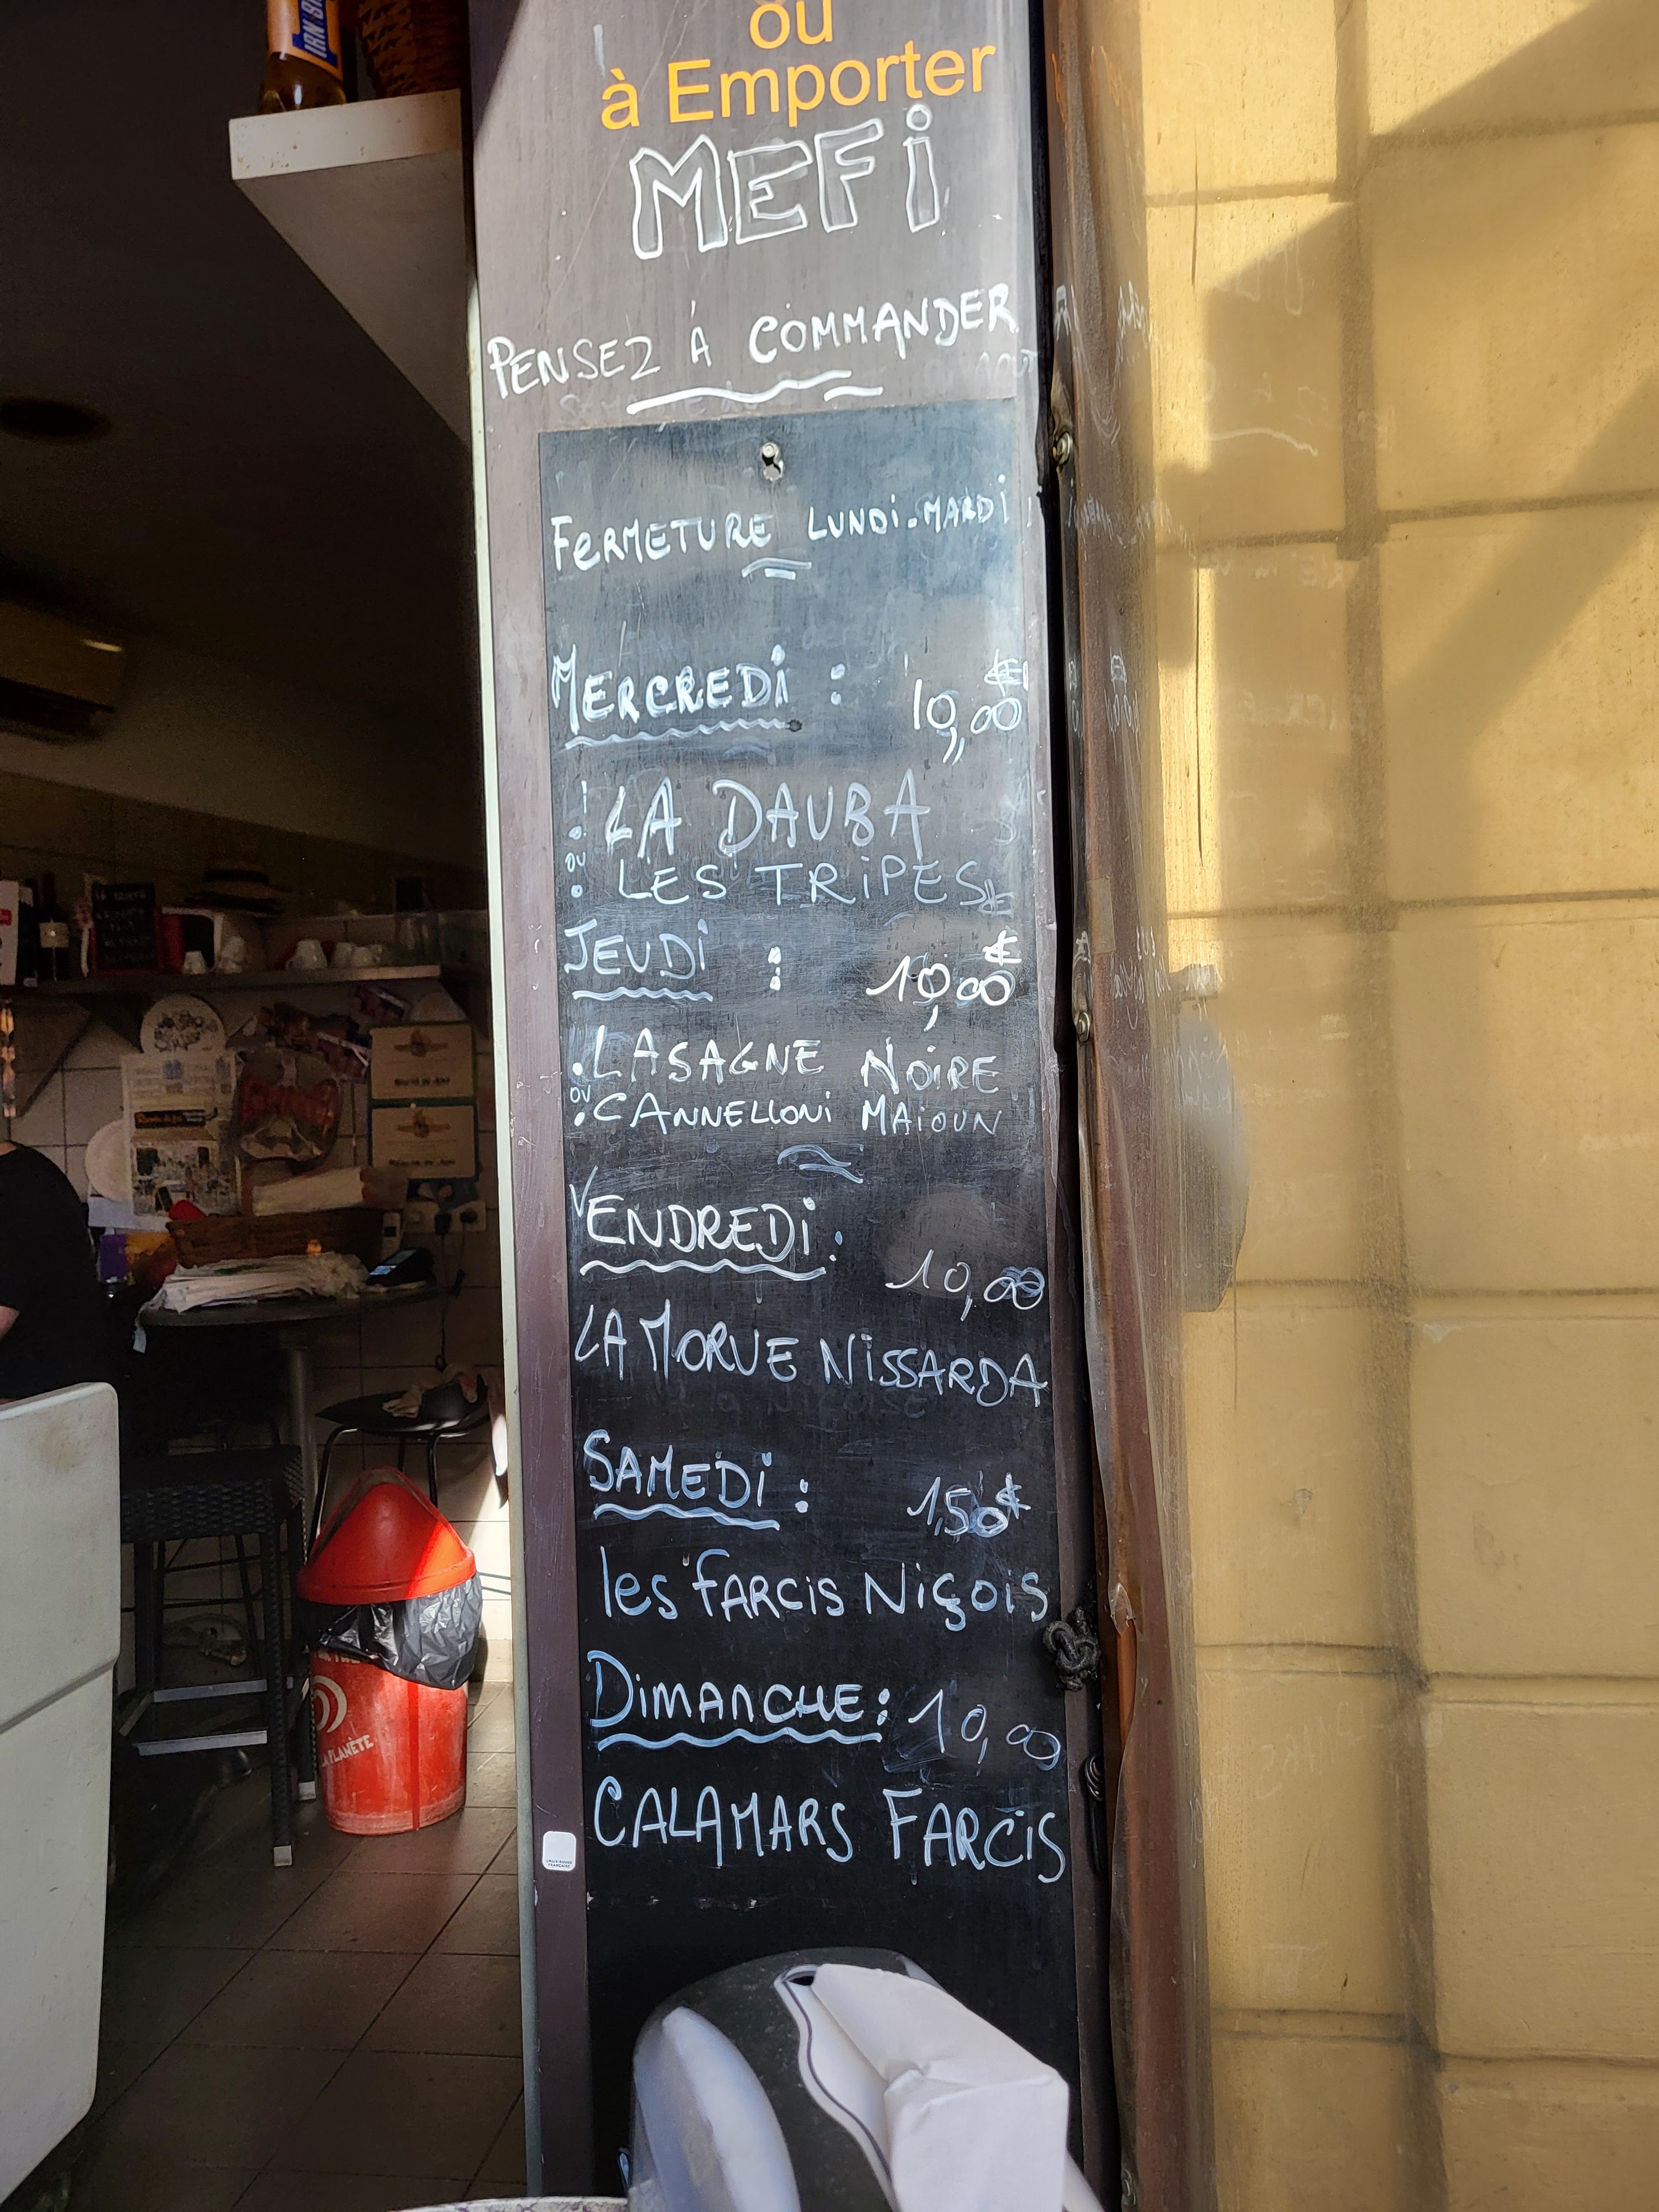 IRN BR
ou
à Emporter
MEFi
PENSEZ À COMMANDER
FeRMETURE LUNDi-MARDi
MERCREDi : 10,00€
• LA DAUBA
ou
• LES TRiPES
JEUDi : 10,00€
• LASAGNE NOiRE
ou
• CANNELLONi MAiOUN
VENDREDi : 10,00
LA MORUE NiSSARDA
SAMEDi : 1,50€
les FARCiS NiçOiS
DiMANCHE : 10,00
CALAMARS FARCiS
LA PLANÈTE